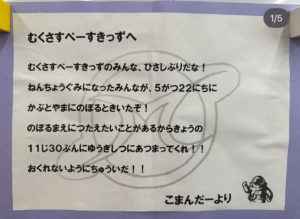 1/5
むくさすぺーすきっずへ
むくさすぺーすきっずのみんな、ひさしぶりだな！
ねんちょうぐみになったみんなが、5がつ22にちに
かぶとやまにのぼるときいたぞ！
のぼるまえにつたえたいことがあるからきょうの
11じ30ぷんにゆうぎしつにあつまってくれ！！
おくれないようにちゅういだ！！
こまんだーより